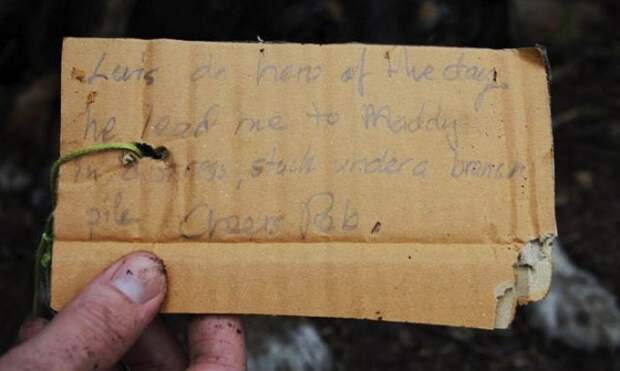 Lewis an hero of the day
he lead me to Maddy
in distress, stuck under a branch
pile Cheers Rob.